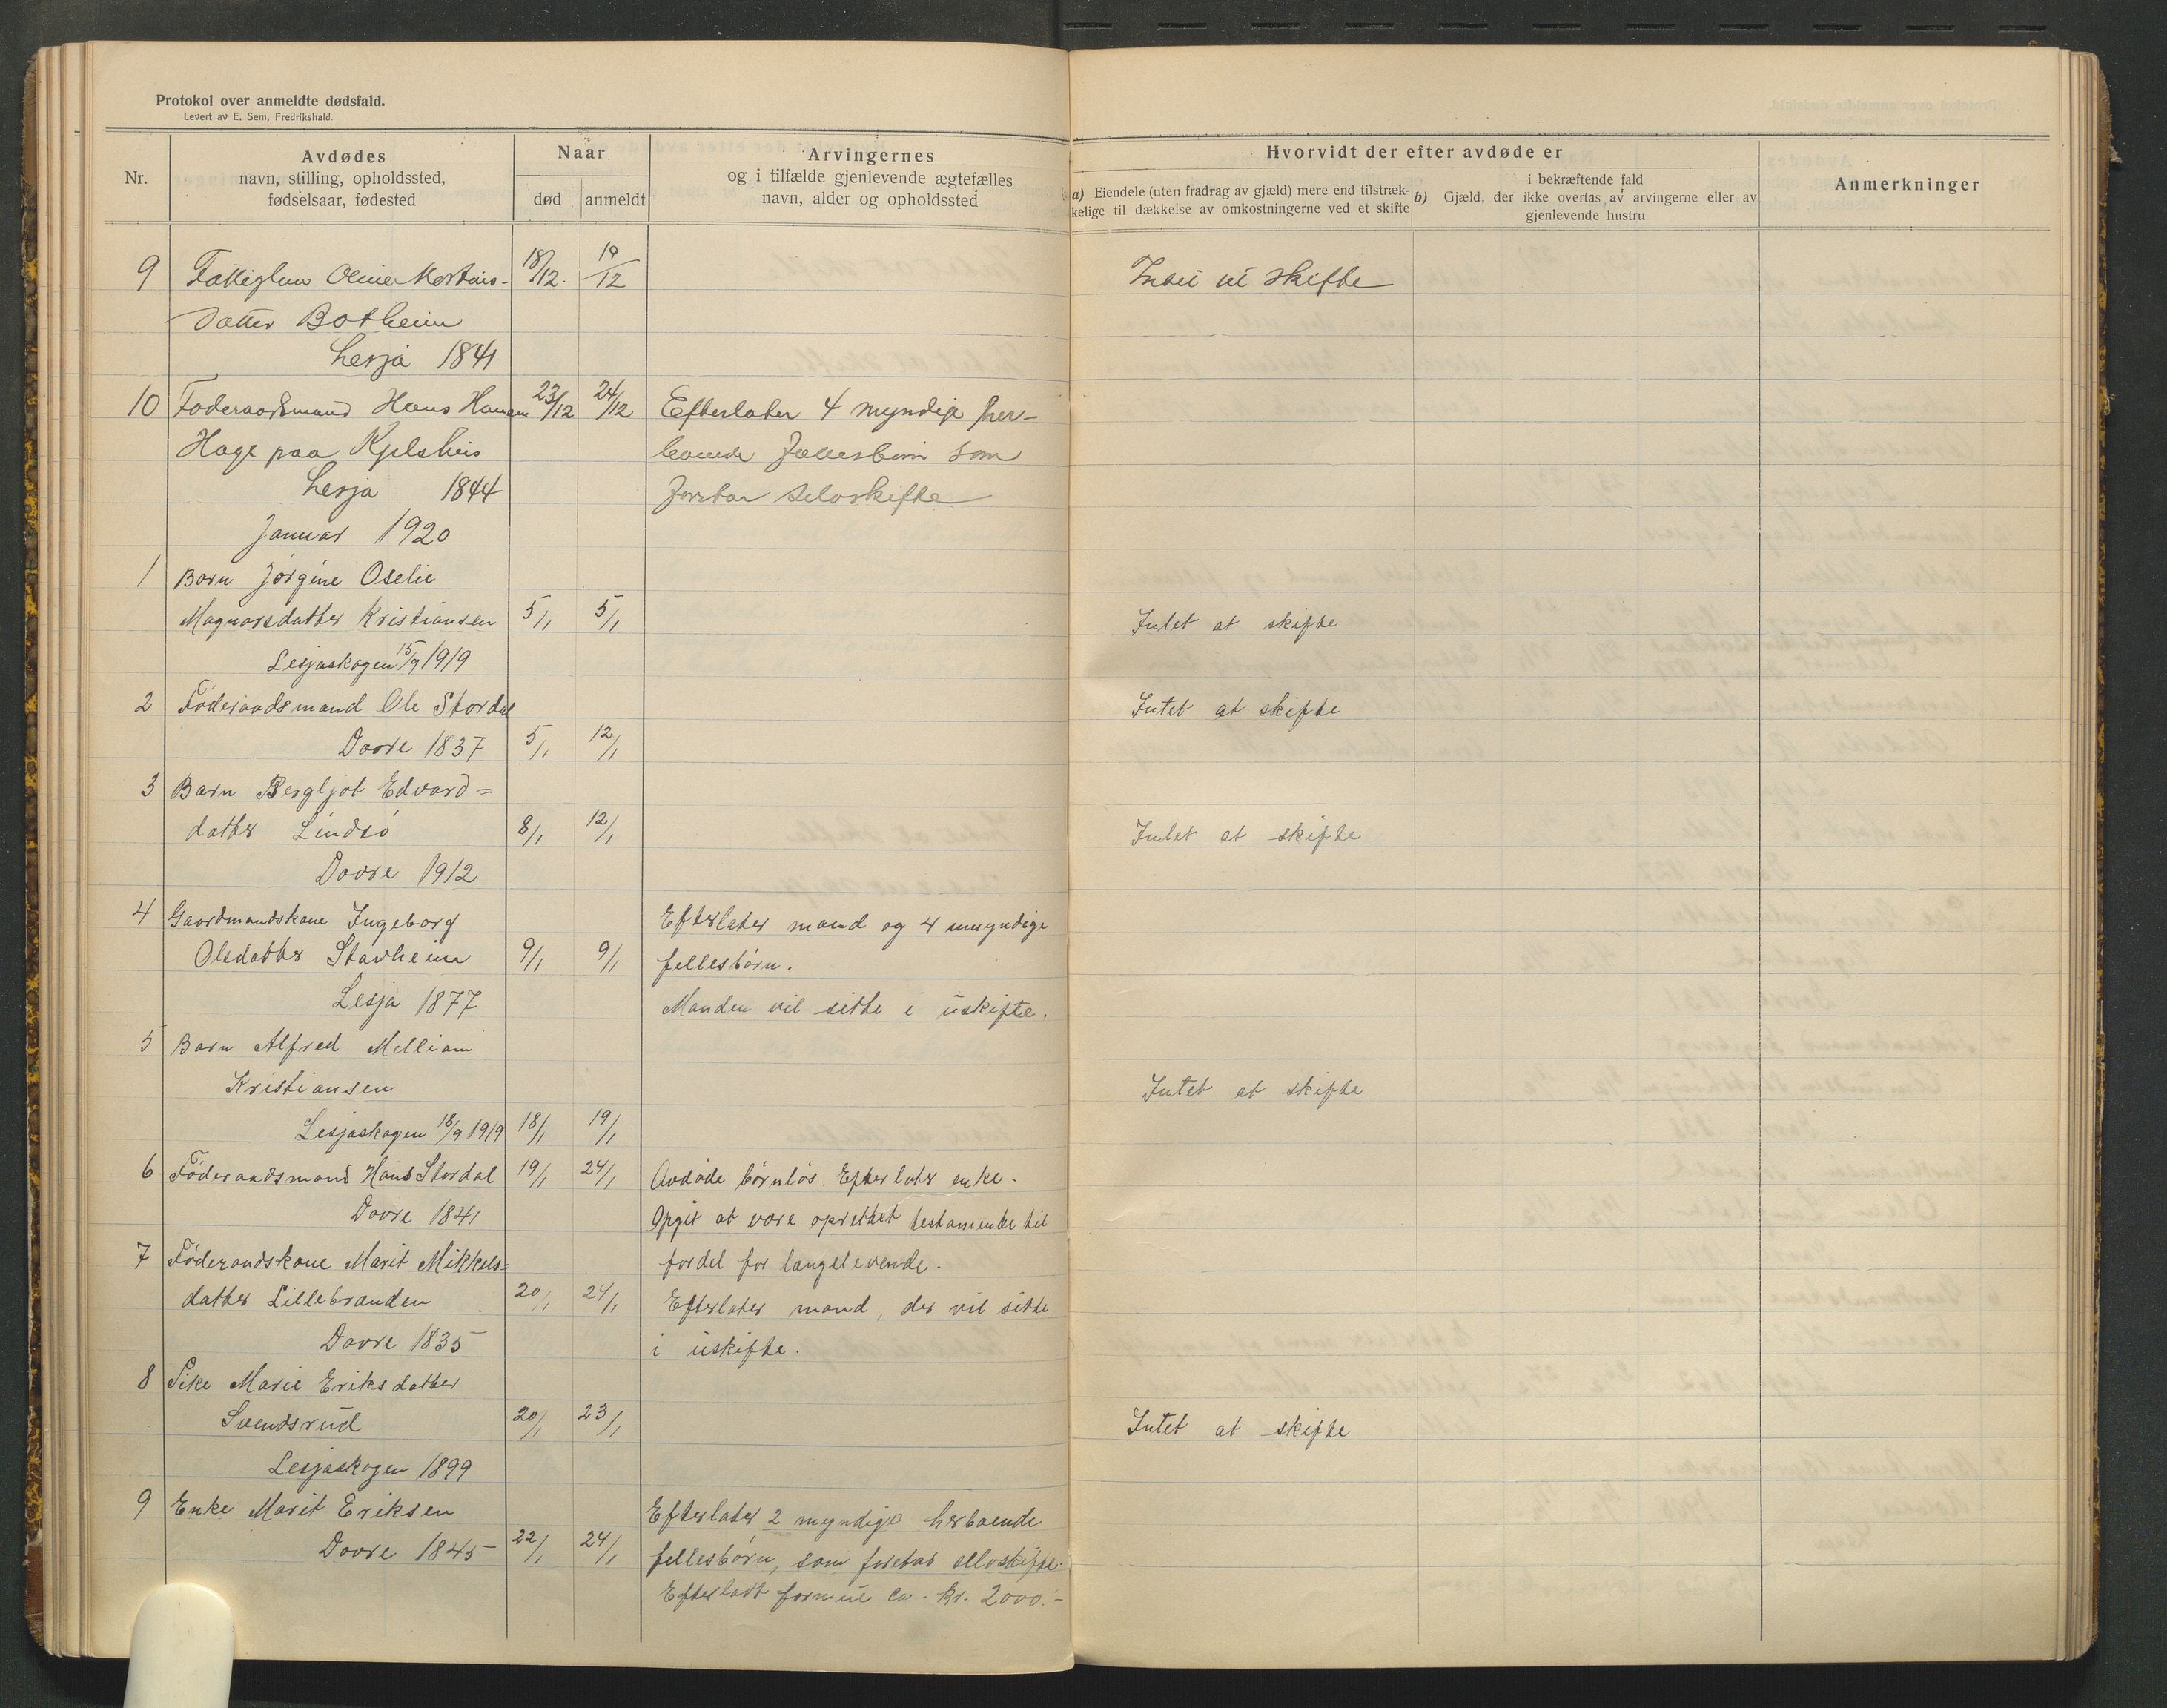 Protokol over anmeldte dødsfald.
Levert av E. Sem, Fredrikshald.
Nr.
Avdødes
navn, stilling, opholdssted,
fødselsaar, fødested
Naar
død
anmeldt
Arvingernes
og i tilfælde gjenlevende ægtefælles
navn, alder og opholdssted
Hvorvidt der efter avdøde er
a) Eiendele (uten fradrag av gjæld) mere end tilstræk-
kelige til dækkelse av omkostningerne ved et skifte
i bekræftende fald
b) Gjæld, der ikke overtas av arvingerne eller av
gjenlevende hustru
Anmerkninger
9 Fattiglem Oline Mortens- 18/12. 19/12 Intet at skifte
datter Botheim
Lesja 1841
10 Føderaadsmand Hans Hansen 23/12 24/12 Efterlater 4 myndige her-
Hage paa Kjelshus boende fællesbørn som
Lesja 1844 foretar selvskifte
Januar 1920
1 Barn Jørgine Oselie
Magnarsdatter Kristiansen 5/1 5/1 Intet at skifte
Lesjaskogen 15/9 1919
2 Føderaadsmand Ole Stordal Intet at skifte
Dovre 1837 5/1 12/1
3 Barn Bergljot Edvard=
datter Lindsø 8/1 12/1 Intet at skifte
Dovre 1912
4 Gaardmandskone Ingeborg Efterlater mand og 4 umyndige
Olsdatter Stavheim 9/1 9/1 fellesbørn.
Lesja 1877 Manden vil sitte i uskifte.
5 Barn Alfred Melliam
Kristiansen Intet at skifte
Lesjaskogen 18/9 1919 18/1 19/1
6 Føderaadsmand Hans Stordal 19/1 24/1 Avdøde børnløs. Efterlater enke.
Dovre 1841 Opgit at være oprettet testamente til
7 Føderaadskone Marit Mikkels= fordel for længstlevende.
datter Lillebraaden 20/1 24/1 Efterlater mand, der vil sitte
Dovre 1835 i uskifte.
8 Pike Marie Eriksdatter
Svendsrud 20/1 23/1 Intet at skifte
Lesjaskogen 1899
9 Enke Marit Eriksen Efterlater 2 myndige herboende
Dovre 1845 22/1 24/1 fellesbørn, som foretar selvskifte.
Efterladt formue ca. kr. 2000.-